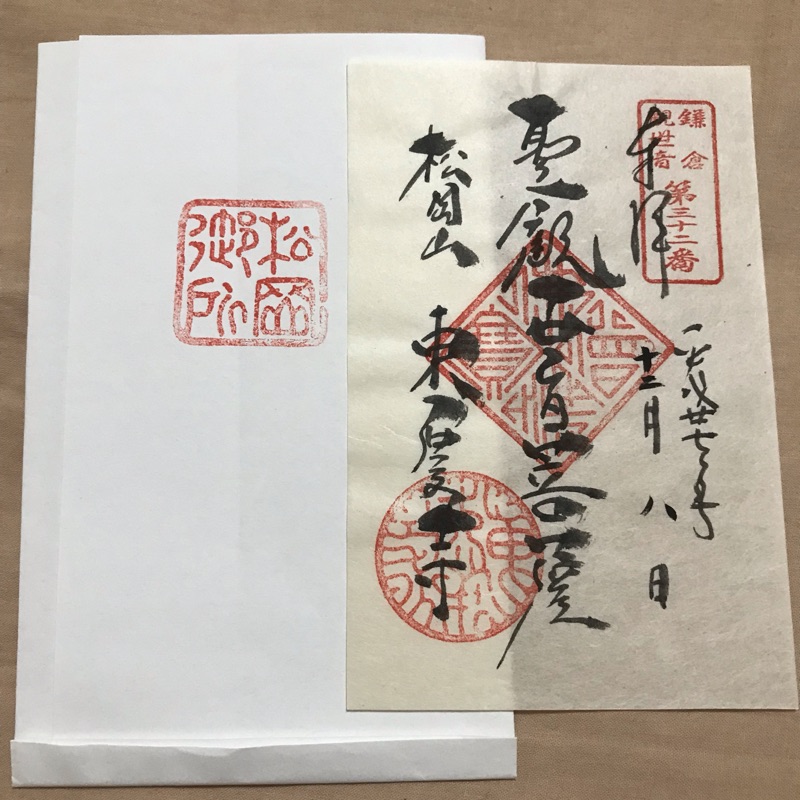 松岡
御所
鎌倉
観世音
第三十二番
奉拝
平成廿七年
十二月八日
聖観世音菩薩
松岡山 東慶寺